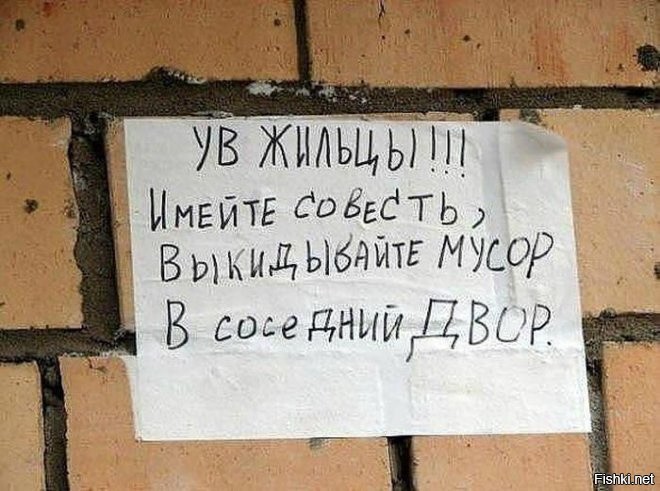 УВ ЖИЛЬЦЫ!!!
ИМЕЙТЕ СОВЕСТЬ,
ВЫКИДЫВАЙТЕ МУСОР
В соседний ДВОР.
Fishki.net